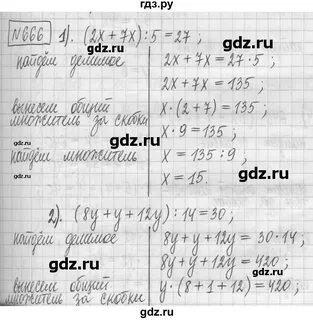 гдз.ру
№666 1). (2x + 7x) : 5 = 27 ;
найдём делимое 2x + 7x = 27 · 5 ;
2x + 7x = 135 ;
вынесем общий x · (2 + 7) = 135 ;
множитель за скобки
x · 9 = 135 ;
найдём множитель x = 135 : 9 ;
x = 15.
2). (8y + y + 12y) : 14 = 30 ;
найдём делимое 8y + y + 12y = 30 · 14 ;
8y + y + 12y = 420 ;
вынесем общий y · (8 + 1 + 12) = 420 ;
множитель за скобки
gdz.ru
gdz.ru
gdz.ru
gdz.ru
gdz.ru
gdz.ru
gdz.ru
gdz.ru